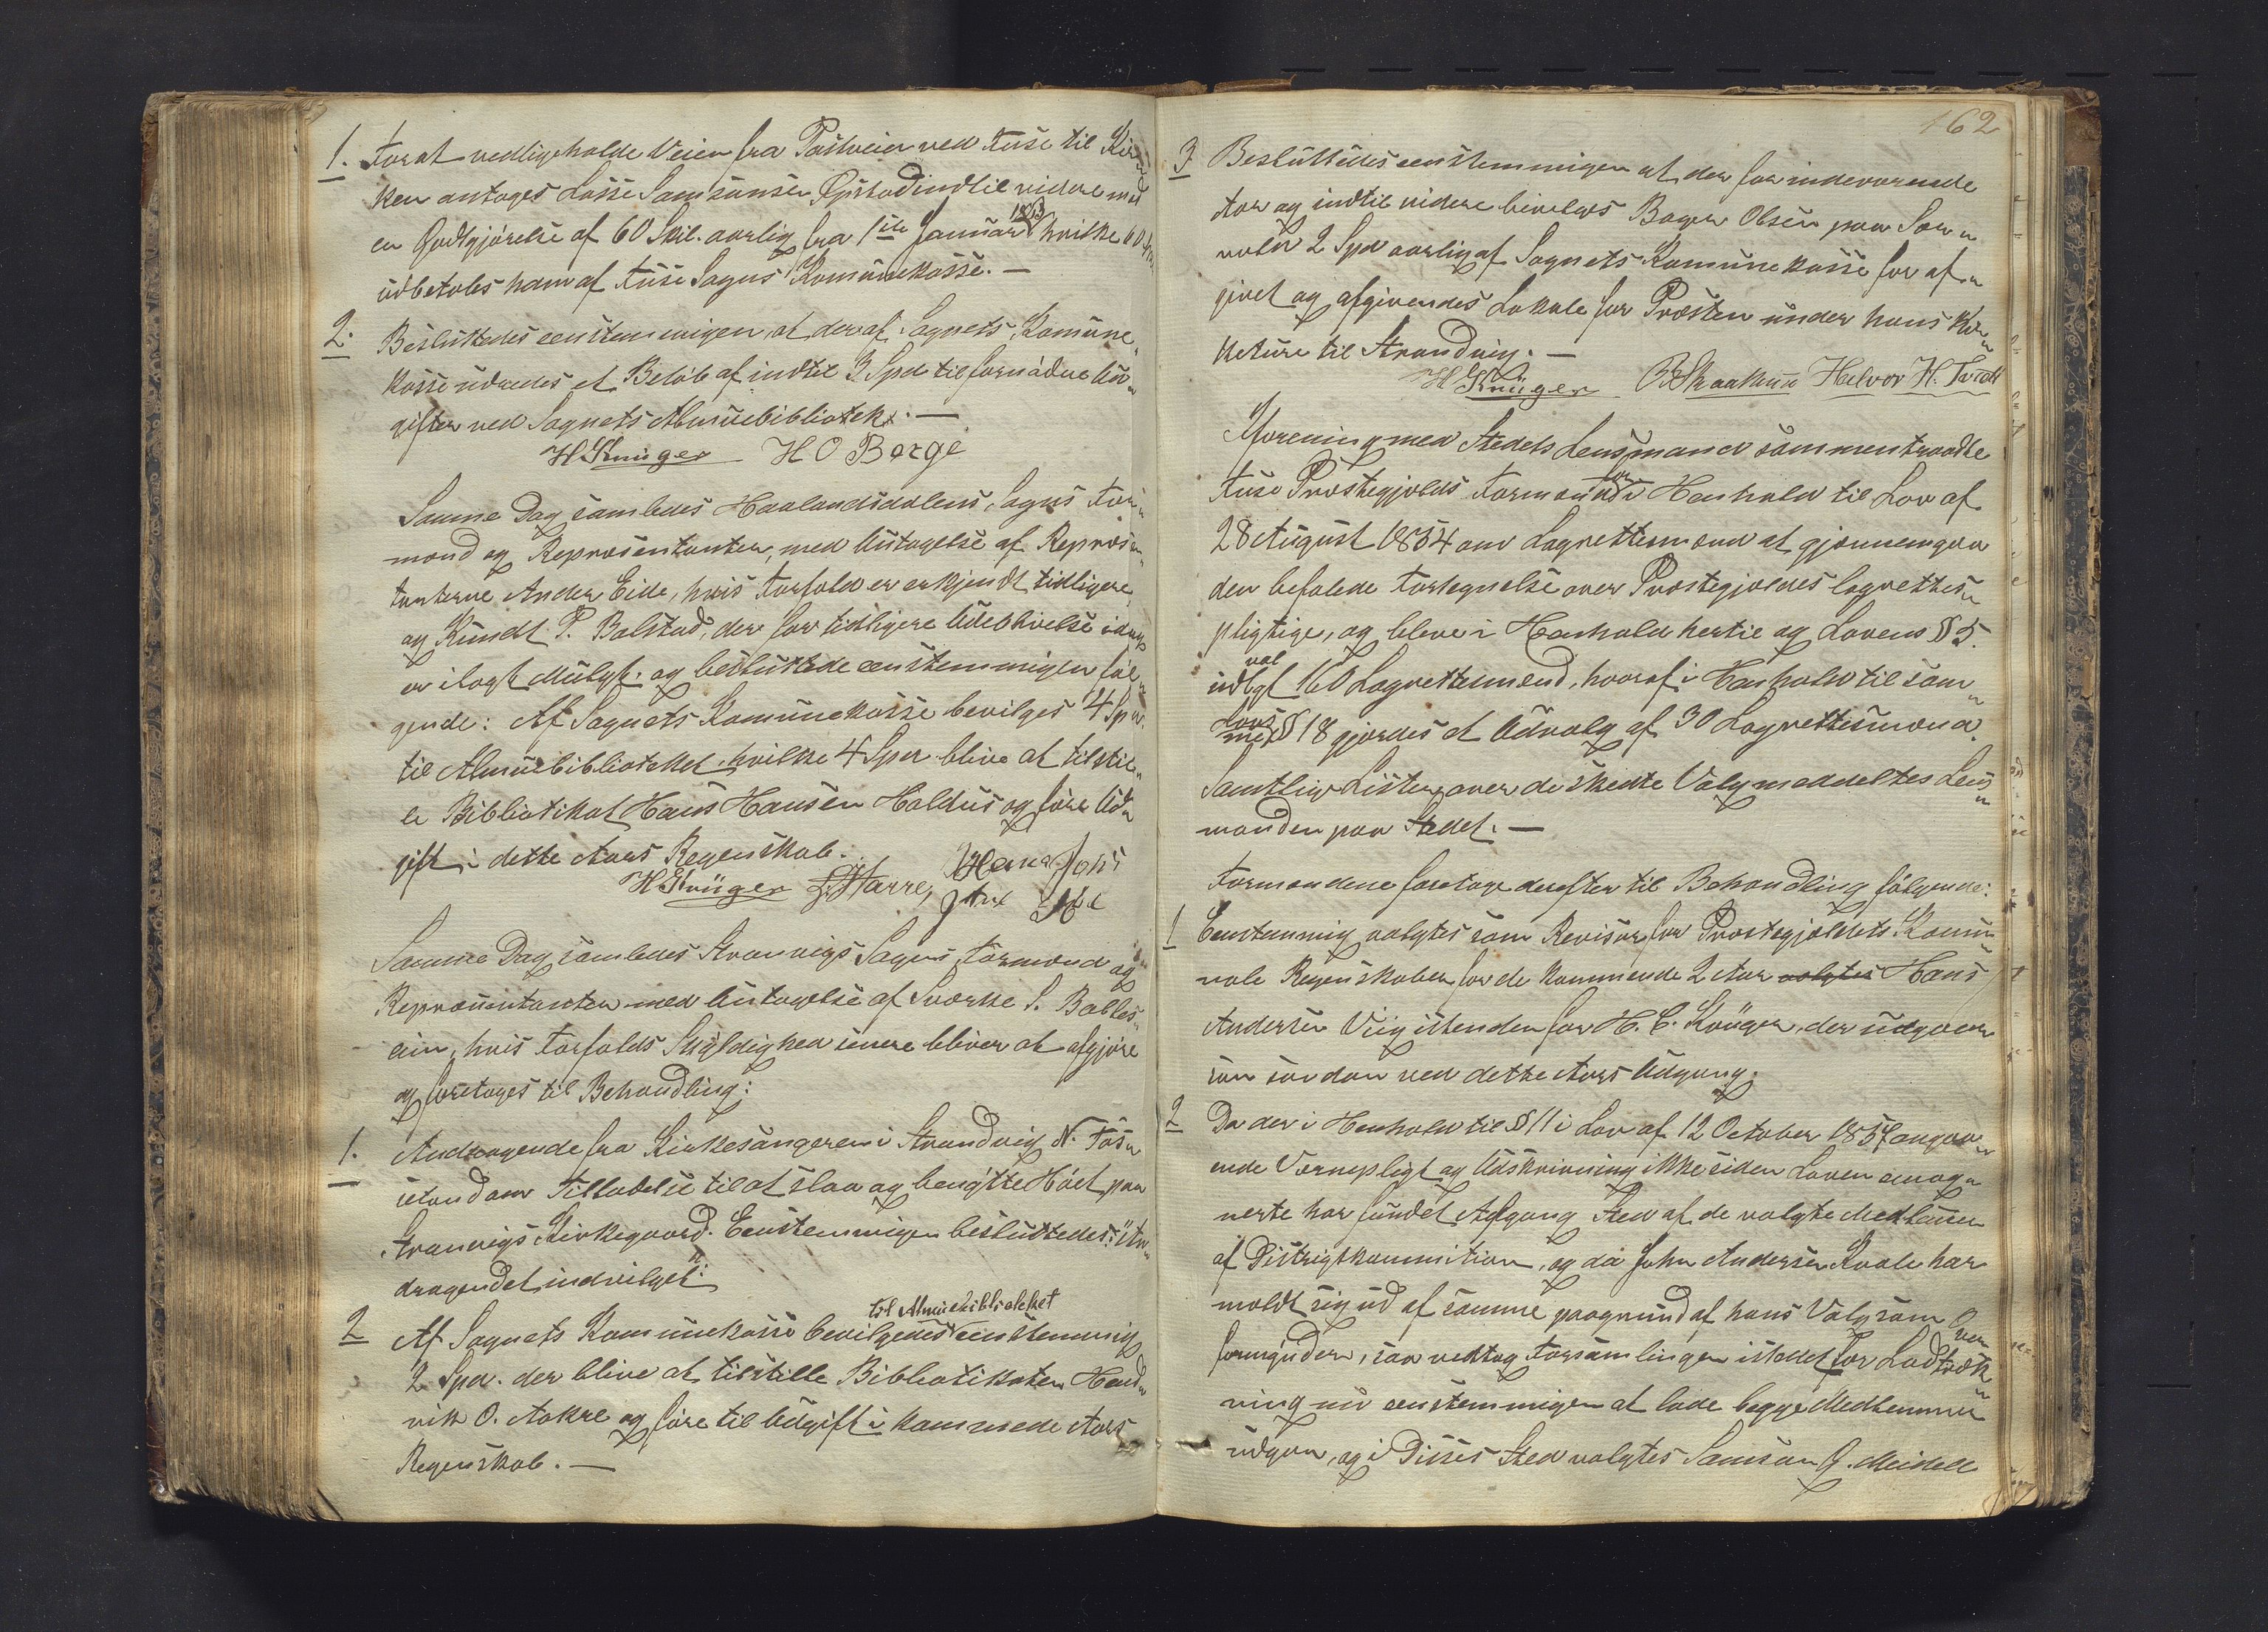 1. Forat vedligeholde Veien fra Postveien ved Fuse til Kir„
ken antoges Lasse Samsonsen Opstad indtil videre med
en Godtgjörelse af 60 Skil. aarlig fra 1ste Januar 1853 hvilke 60 Skil
udbetales ham af Fuse Sogns Komünekasse. —
2. Besluttedes eenstemmigen at der af Sognets Komüne„
kasse udredes et Belöb af indtil 3 Spd til fornödne Ud„
gifter ved Sognets Almuebibliotek. —
H Krüger H O Berge
Samme Dag samledes Haalandsdalens Sogns For„
mænd og Repræsentanter, med Undtagelse af Repræsen„
tanterne Anders Eide, hvis Forfald er erkjendt tidligere,
og Knudt P. Bolstad, der for tidligere Udeblivelse idag
er ilagt Mulgt. og besluttede eenstemmigen föl„
gende: Af Sognets Komünekasse bevilges 4 Spd.
til Almuebiblioteket, hvilke 4 Spd. blive at tilstil„
le Bibliotikar Hans Hansen Holdus og före Ud„
gift i dette Aars Regenskab.
H Krüger
Samme Dag samledes Strandvigs Sogns Formænd og
Repræsentanter med Undtagelse af Sværke S. Balles„
eim, hvis Forfalds Gyldighed senere bliver at afgjöre
og foretoges til Behandling:
1. Andragende fra Kirkesangeren i Strandvig N. Fos„
sland om Tilladelse til at slaa og benytte Höet paa
Strandvigs Kirkegaard. Eenstemmigen besluttedes: "An„
dragendet indvilget".
2 Af Sognets Komünekasse bevilgedes til Almuebiblioteket eenstemmig
2 Spd. der blive at tilstille Bibliotikaren Hend„
rik O. Aakre og före til Udgift i kommende Aars
Regenskab. —
162
3 Besluttedes eenstemmigen at der for indeværende
Aar og indtil videre bevilges Børger Olsen paa Sær„
vold 2 Spd aarlig af Sognets Komünekasse for af„
givet og afgivendes Lokale for Præsten under hans Kor„
reture til Strandvig. —
H Krüger B Skaathun Halvor H. Tvedt
Iforening med Stedets Lensmand sammentraadte
Fuse Præstegjælds Formænd for i Henhold til Lov af
28 August 1854 om Lagrettemænd at gjennemgaa
den befalede Fortegnelse over Præstegjældets lagrettes„
pligtige, og bleve i Henhold hertil og Lovens § 5.
udvalgt 160 Lagrettemænd, hvoraf i Henhold til sam„
me Lovs § 18 gjordes et Udvalg af 30 Lagrettesmænd.
Samtlige Lister over de skedte Valg meddeltes Lens„
manden paa Stedet. —
Formændene foretoge derefter til Behandling fölgende:
1 Eenstemmig valgtes som Revisor for Præstegjældets Komü„
nale Regenskaber for de kommende 2 Aar valgtes Hans
Andersen Viig istenden for H. C. Krüger, der udgaaer
som saadan ved dette Aars Udgang.
2 Da der i Henhold til § 11 i Lov af 12 October 1857 angaa„
ende Værnepligt og Udskrivning ikke siden Loven emag„
nerte har fundet Afgang Sted af de valgte Medlemer
af Distrigtkommition, og da John Andersen Kvale har
meldt sig ud af samme paagrund af hans Valg som Over
formynder, saa vedtog Forsamlingen istedet for Lodtræk„
ning nu eenstemmigen at lade begge Medlemmer
udgaa, og i Disses Sted valgtes Samson G. Meidell